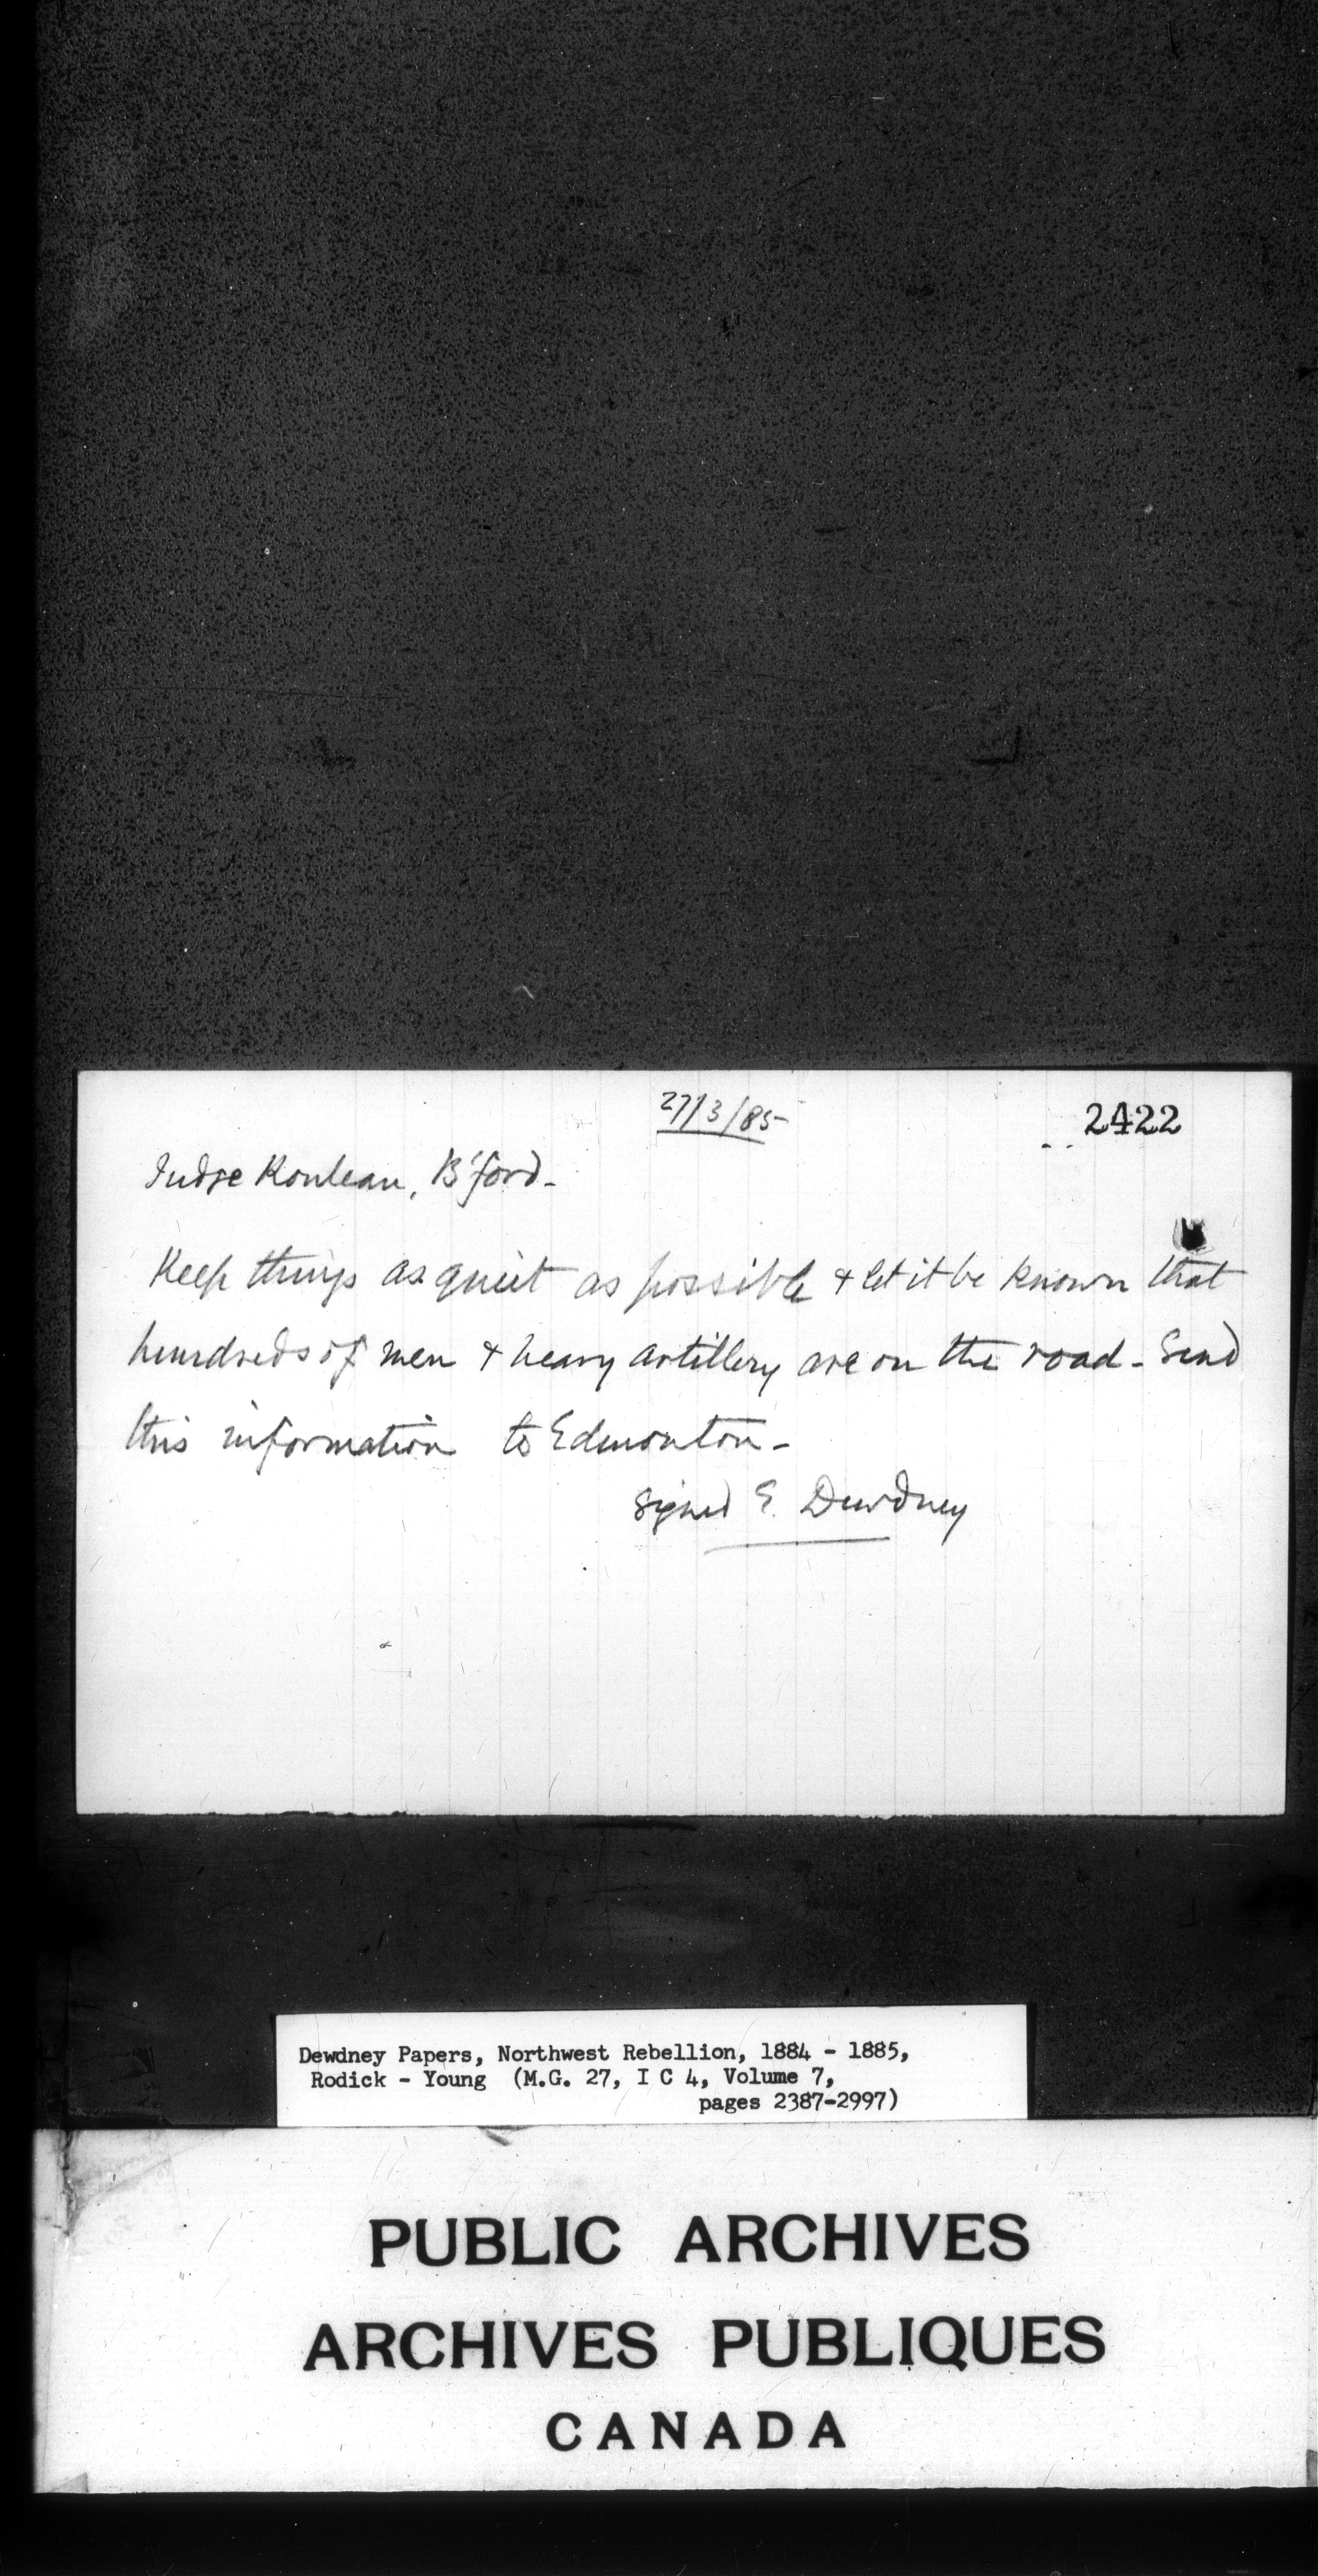 27/3/85
2422
Judge Rouleau, B'ford -
Keep things as quiet as possible & let it be known that
hundreds of men & heavy artillery are on the road - Send
this information to Edmonton -
Signed E. Dewdney
Dewdney Papers, Northwest Rebellion, 1884 - 1885,
Rodick - Young (M.G. 27, I C 4, Volume 7,
pages 2387-2997)
PUBLIC ARCHIVES
ARCHIVES PUBLIQUES
CANADA